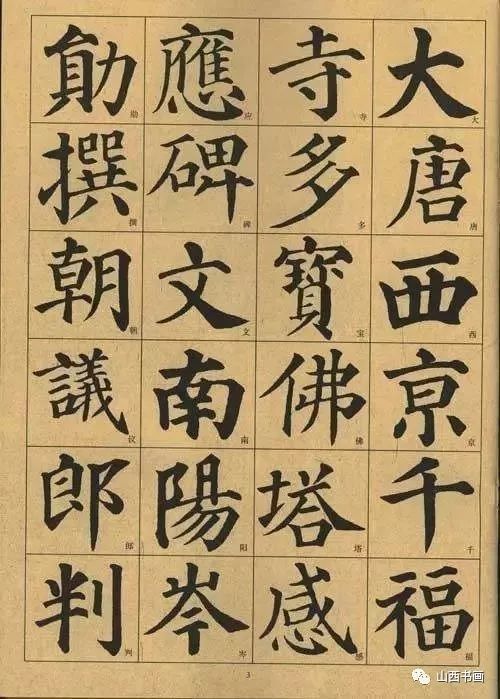 大唐西亰千福
大唐西京千福
寺多寶佛塔感
寺多宝佛塔感
應碑文南陽岑
应碑文南阳岑
勛撰朝議郎判
勋撰朝议郎判
3
山西书画